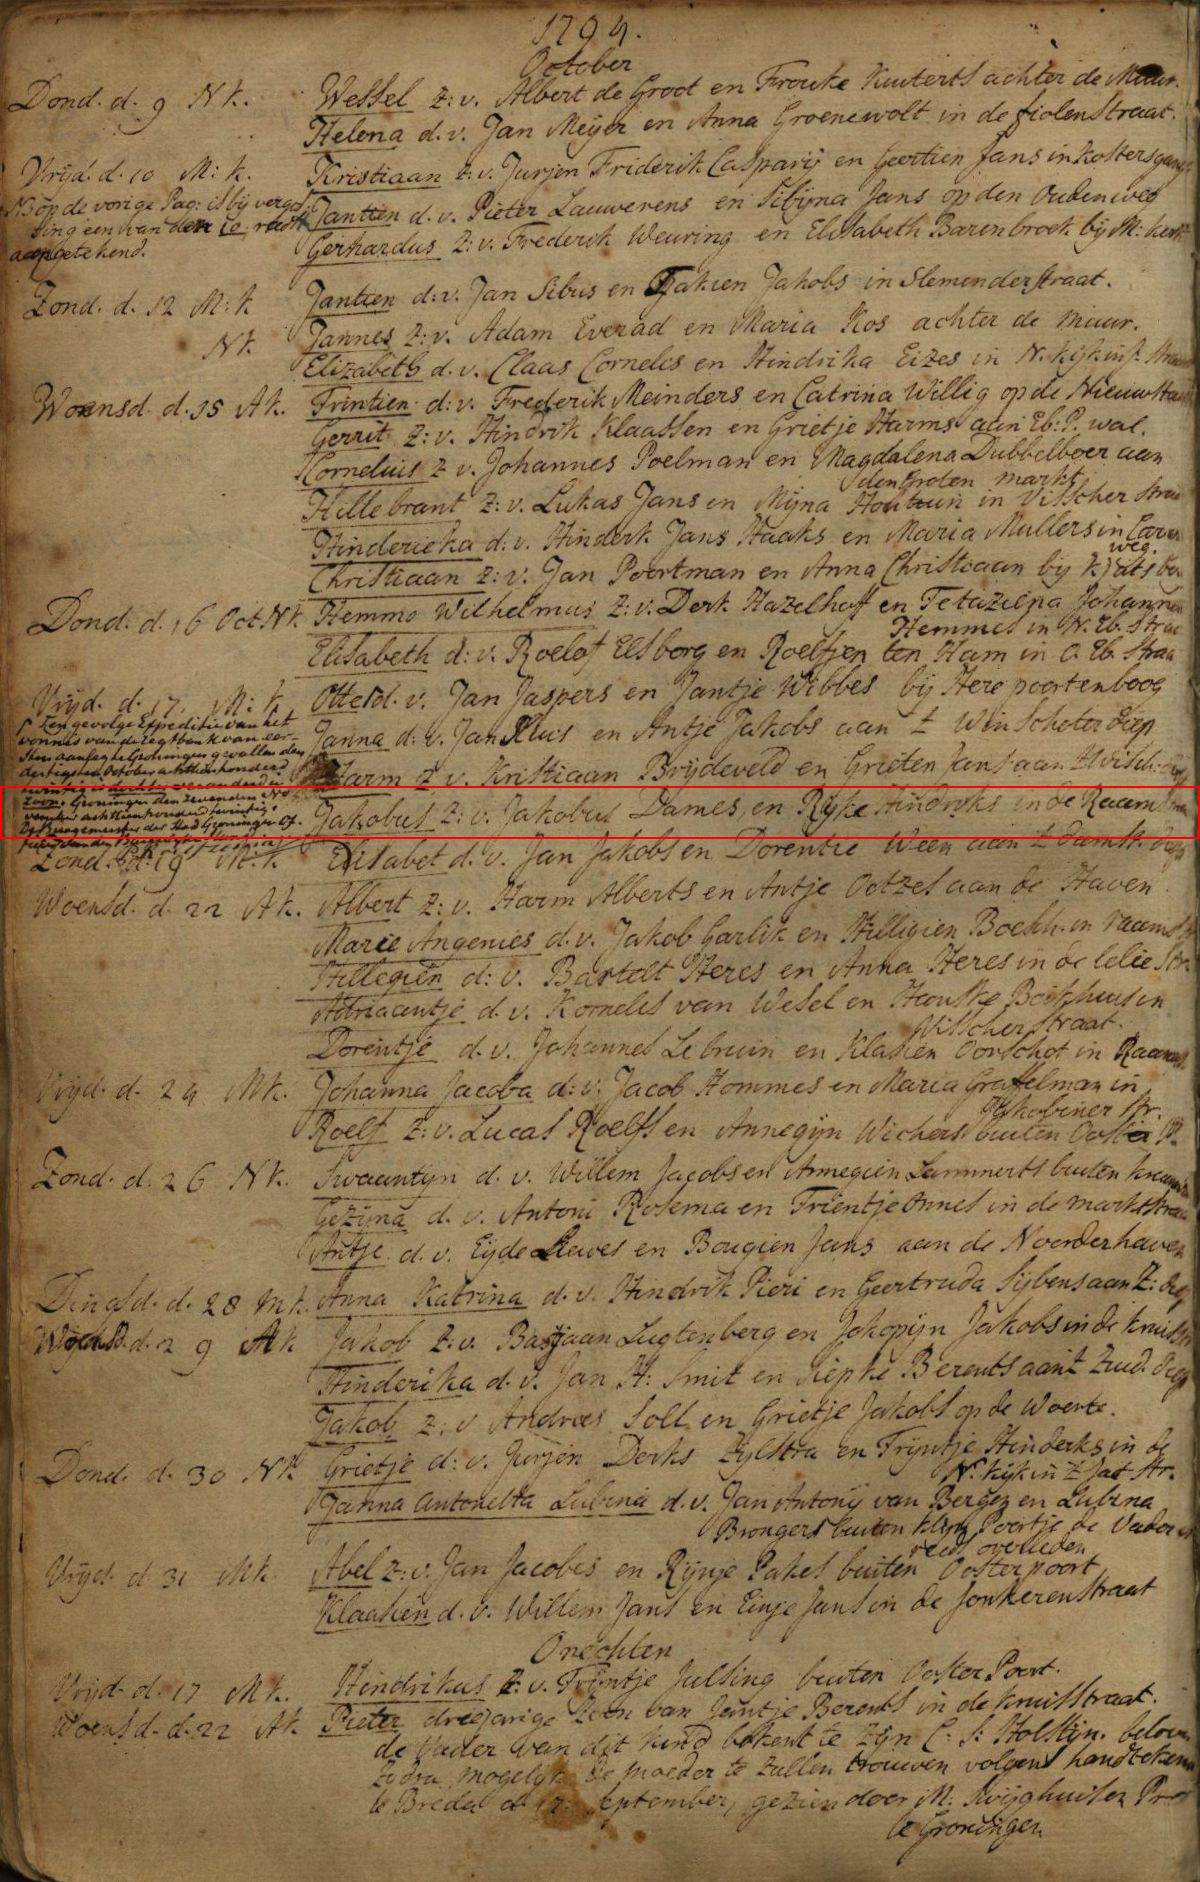 1794.
October
Dond. d. 9 N k. Wessel z: v. Albert de Groot en Frouke Kuiterts achter de Muur.
Helena d. v. Jan Meijer en Anna Groenewolt in de fiolenstraat.
Vrijd. d. 10 M: k. Kristiaan z. v. Jurjen Friderik Casparij en Geertien Jans in Kostersgang
NB op de vorige Pag: is bij vergis- Jantien d. v. Pieter Lauwerens en Sibijna Jans op den Ouden weg
sing een van den 10
aangetekend. Gerhardus z: v. Frederik Weuring en Elisabeth Barenbroek bij M: kerk
Zond. d. 12 M: k Jantien d: v. Jan Sibus en Tjakien Jakobs in Slemenderstraat.
N k. Jannes z: v. Adam Everad en Maria Kos achter de muur.
Elizabeth d. v. Claas Corneles en Hindrika Eizes in N. kijkint
Woensd. d. 15 A k. Trintien d: v. Frederik Meinders en Catrina Willig op de Nieuwsta
Gerrit z: v. Hindrik Klaassen en Grietje Harms aan Eb: P. wal.
Cornelius z v. Johannes Poelman en Magdalena Dubbelboer aan
den Groten markt
Hillebrant z: v. Lukas Jans en Mijna Houtuin in Visscher
Hindericka d: v. Hinderk Jans Haaks en Maria Mullers in
weg.
Christiaan z: v. Jan Poortman en Anna Christiaan bij
Dond. d. 16 Oct N k Hemmo Wilhelmus z: v. Derk Hazelhoff en Johannes
Hemmes in N. Eb. Strae
Elisabeth d: v. Roelof Elsborg en Roelfjen ten Ham in O. Eb. Straa
Vrijd. d. 17. M: k. v. Jan Jaspers en Jantje Wibbes bij Here poortenboog
Ten gevolge Expeditie van het
vonnis van de Regtbank van eer-
sten aanleg te Groningen gevallen den
dertigsten October achttienhonderd
Janna d: v. Jan Kluis en Antje Jakobs aan t Winschoter diep
Harm z v. Kristiaan Brijdeveld en Grieten Jans aan
Groningen den zevenden No
vember achttienhonderd twintig.
De Burgemeester der Stad Groningen
Jakobus z: v. Jakobus Dames, en Rijke Hindriks in de Raam
Zond. d. 19 M: k Elisabet d. v. Jan Jakobs en Dorentie Ween aan t damst.
Woensd. d. 22 A k. Albert z: v. Harm Alberts en Antje Ootzes aan de Haven.
Marie Angenies d. v. Jakob Garlik en Hilligien in raamst
Hillegien d: v. Bartelt Heres en Anna Heres in de lelie Str.
Adriaantje d. v. Kornelis van Wesel en in
Visscherstraat.
Dorentje d. v. Johannes Lebruin en Klasien Oorschot in Raamst
Vrijd. d. 24 M k. Johanna Jacoba d: v. Jacob Hommes en Maria Graffelman in
Jakobiner str.
Roelf z: v. Lucas Roelfs en Annegijn Wichers buiten Ooster P.
Zond. d. 26 N k. Swaantijn d. v. Willem Jacobs en Annegien Lammerts buiten
Gezijna d. v. Antoni Rosema en Trientje Annes in de marktstraat
Antje d. v. Eijde Liewes en Bougien Jans aan de Noorderhaven
Dingsd. d. 28 M k. Anna Katrina d. v. Hindrik Pieri en Geertruda Sijbens aan Z: diep
Woensd. d. 29 A k Jakob z: v. Bastjaan Lugtenberg en Jakopijn Jakobs in de kruisstr
Hinderika d. v. Jan H: Smit en Siepke Berents aant Zuid. diep
Jakob z: v Andrees Soll en Grietje Jakobs op de Woerte.
Dond. d. 30 N k Grietje d: v. Jurjen Derks Zylstra en Trijntje Hinderks in de
N. kijk in t Jat str.
Janna Antonetta Lubina d. v. Jan Antonij van Bergen en Lubina
Brongers buiten klein Poortje de Vader is
reeds overleden
Vrijd. d 31 M k Abel z: v. Jan Jacobes en Rijnje Pakes buiten Oosterpoort
Klaasien d. v. Willem Jans en Einje Jans in de Jonkerenstraat
Onechten
Vrijd. d. 17 M k. Hindrikus z: v. Trijntje Julsing buiten Ooster Poort.
Woensd. d. 22 A k Pieter driejarige zoon van Jantje Berents in de kruisstraat.
de Vader van dit kind bekent te zijn C: S: Holstijn. beloven
zodra mogelyk de moeder te zullen trouwen volgens handteken
te Breda d. 17 September, gezien door M: Kuijghuisen Pred
te Groningen